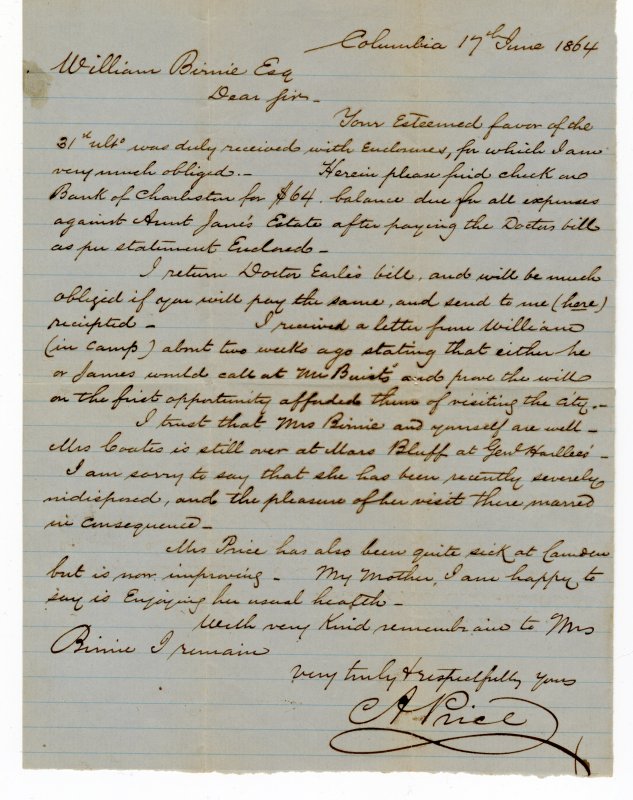 Columbia 17th June 1864
William Birnie Esq
Dear Sir -
Your Esteemed favor of the
31st ulto was duly received with Enclosures, for which I am
very much obliged. - Herein please find check on
Bank of Charleston for $64. balance due for all expenses
against Aunt Jane's Estate after paying the Doctors bill
as per statement Enclosed -
I return Doctor Earle's bill, and will be much
obliged if you will pay the same, and send to me (here)
reciepted - I received a letter from William
(in camp) about two weeks ago stating that either he
or James would call at Mr Buist's and prove the will
on the first opportunity afforded them of visiting the City. -
I trust that Mrs Birnie and yourself are well -
Mrs Coates is still over at Mars Bluff at Genl Harllee's -
I am sorry to say that she has been recently severely
indisposed, and the pleasure of her visit there marred
in consequence -
Mrs Price has also been quite sick at Camden
but is now improving - My Mother, I am happy to
say is Enjoying her usual health -
With very Kind remembrance to Mrs
Birnie I remain
very truly & respectfully yours
A Price